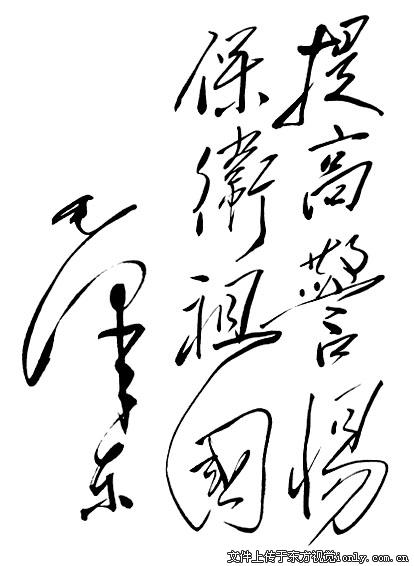 提高警惕
保衛祖國
毛澤东
文件上传于东方视觉ionly.com.cn